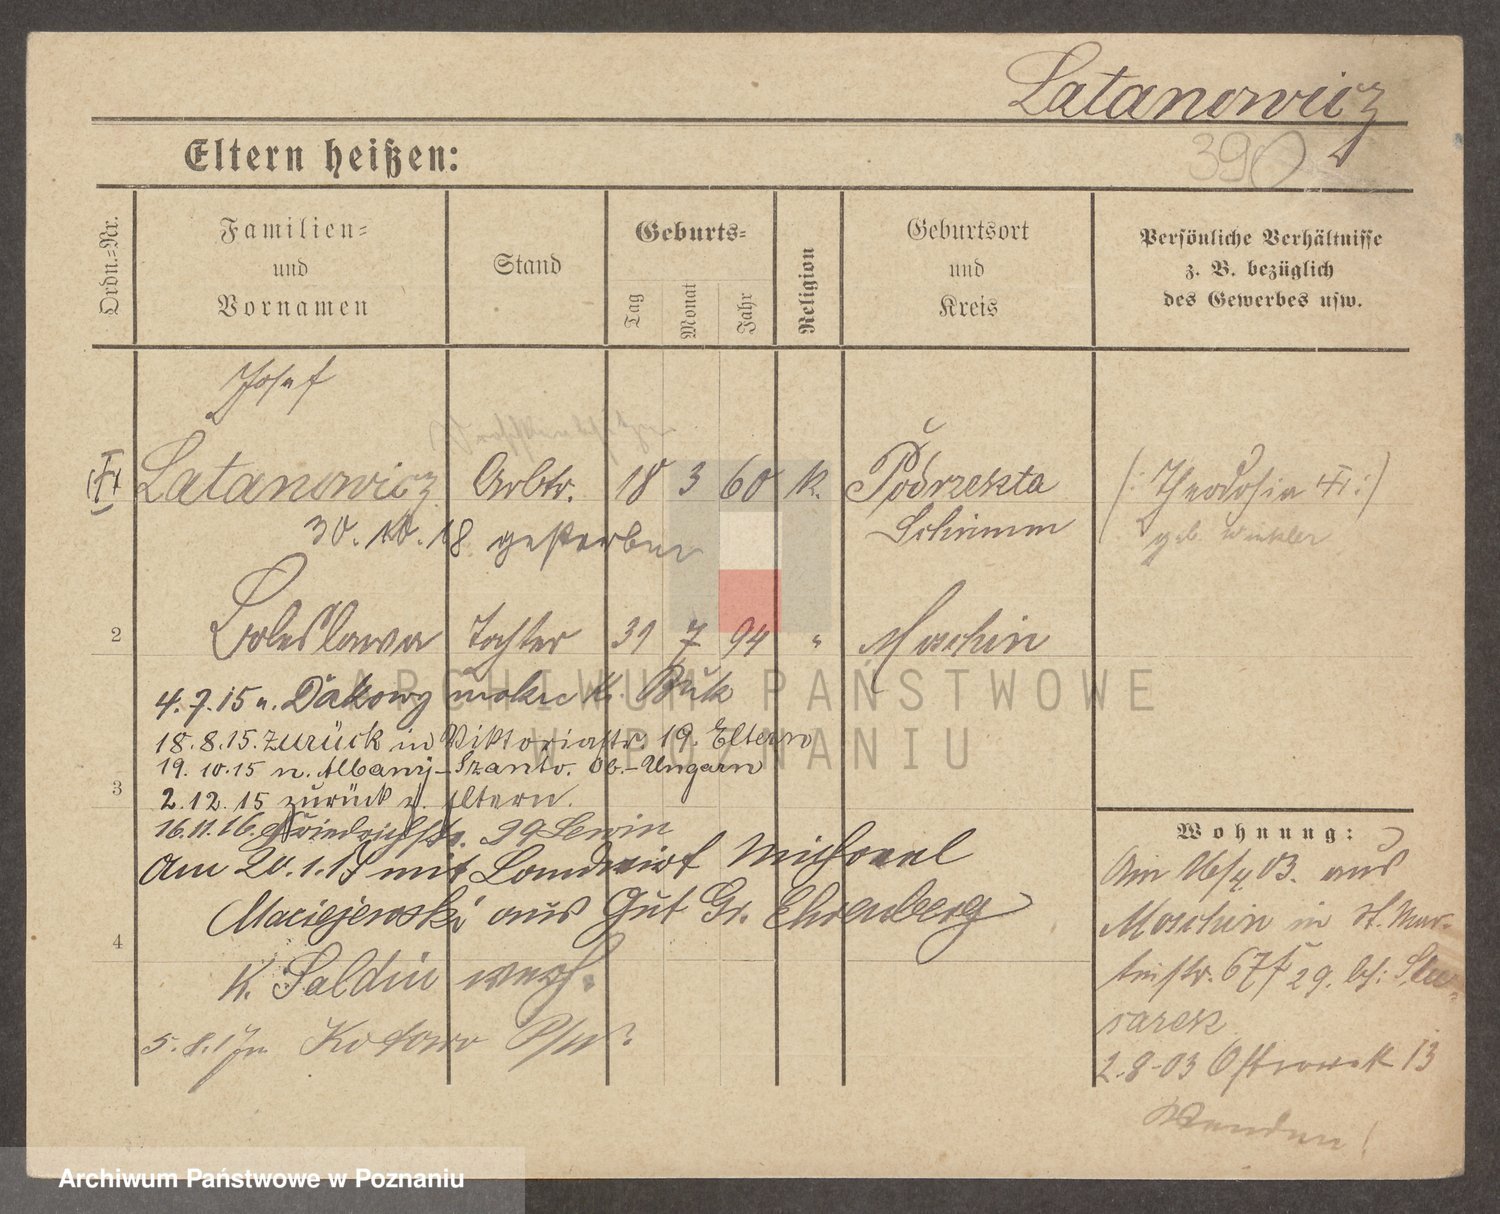 Latanowicz
390
Eltern heißen:
Ordn.-Nr.
Familien-
und
Vornamen
Stand
Geburts-
Tag
Monat
Jahr
Religion
Geburtsort
und
Kreis
Persönliche Verhältnisse
z. B. bezüglich
des Gewerbes usw.
Josef
Latanowicz Arbtr. 18 3 60 k. Podrzekta
Schrimm
(: Theodosia :)
geb. Winkler
30. 10. 18 gestorben
2 Boleslawa Tochter 31 7 94 " Moschin
4.7.15 n. Dakowy mokre Kr. Buk
18.8.15. zurück in Viktoriastr. 19. Eltern
19.10.15 n. Albany-Szanto. Ob.-Ungarn
3
2.12.15 zurück z. Eltern.
16.11.16. Friedrichstr. 29 Lewin
Am 20.1.18 mit Landwirt Michael
Maciejewski aus Gut Gr. Ehrenberg
4
K. Soldin verh.
5.8.17 n. Kotowo
Wohnung:
Am 16/4 03. aus
Moschin in St. Mar-
tinstr. 67 29. bf:
2.8.03 Ostrowek 13
Wenden!
ARCHIWUM PAŃSTWOWE
W POZNANIU
Archiwum Państwowe w Poznaniu